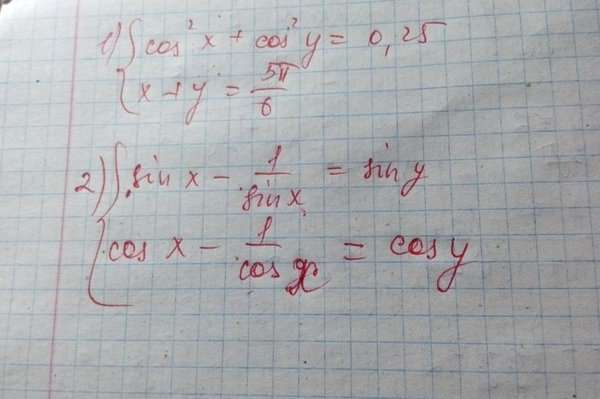 1) { cos² x + cos² y = 0,25
x + y = 5π/6
2) { sin x - 1/sin x = sin y
cos x - 1/cos x = cos y